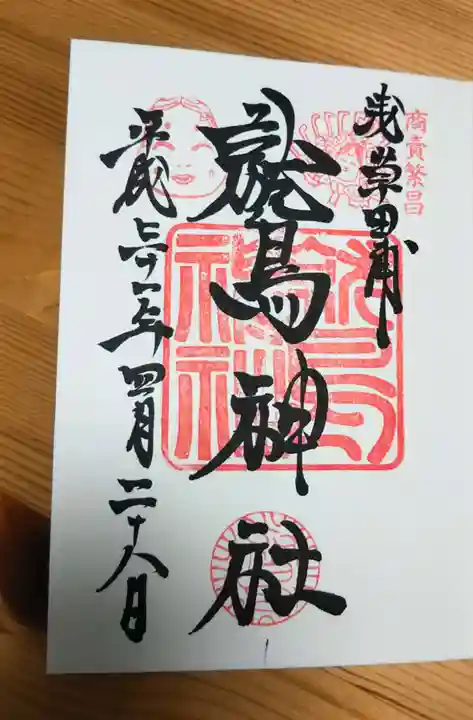 商売繁昌
浅草田甫
鷲神社
平成三十一年四月二十八日